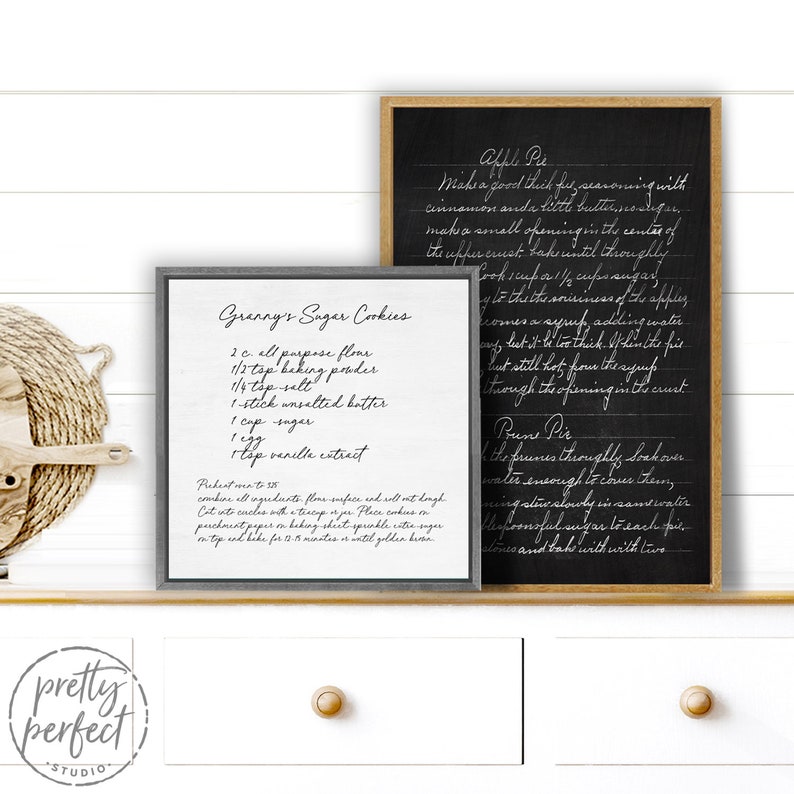 Granny's Sugar Cookies
2 c. all purpose flour
1/2 tsp baking powder
1/4 tsp salt
1 stick unsalted butter
1 cup sugar
1 egg
1 tsp vanilla extract
Preheat oven to 325
combine all ingredients, flour surface and roll out dough.
Cut into circles with a teacup or jar. Place cookies on
parchment paper on baking sheet sprinkle extra sugar
on top and bake for 12-15 minutes or until golden brown.
Apple Pie
Make a good thick pie, seasoning with
cinnamon and a little butter, no sugar,
make a small opening in the centre of
the upper crust. bake until throughly
Cook 1 cup or 1 1/2 cups sugar,
to the the souriness of the apples,
comes a syrup, adding water
but it be too thick. When the pie
but still hot, pour the syrup
through the opening in the crust
Prune Pie
the prunes throughly, Soak over
water eneough to cover them,
stew slowly in same water
spoonful sugar to each pie.
stones and bake with with two
pretty
perfect
· STUDIO ·